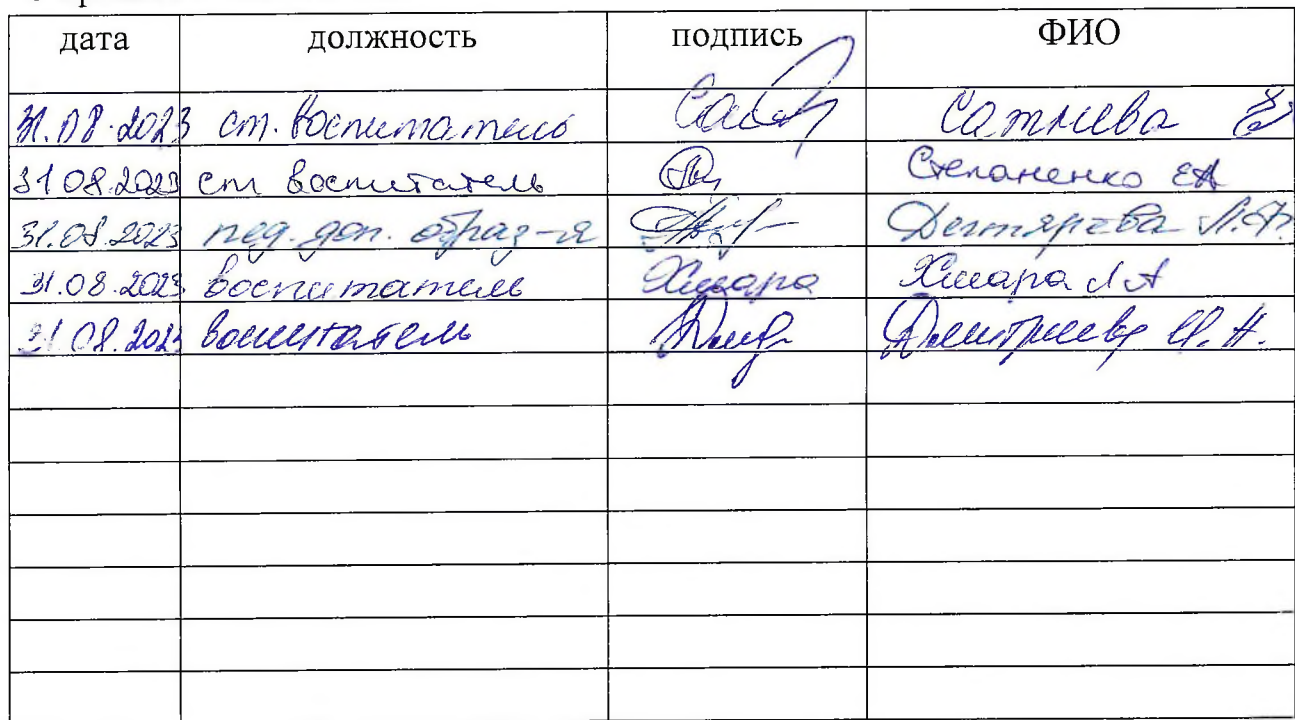 дата должность подпись ФИО
31.08.2023 ст. воспитатель Сатнева
31 08.2023 ст воспитатель Степаненко ЕА
31.08.2023 пед. доп. образ-я Дегтярева
31.08.2023 воспитатель Хмара Хмара Л А
31.08.2023 воспитатель Дмитриева И. Н.